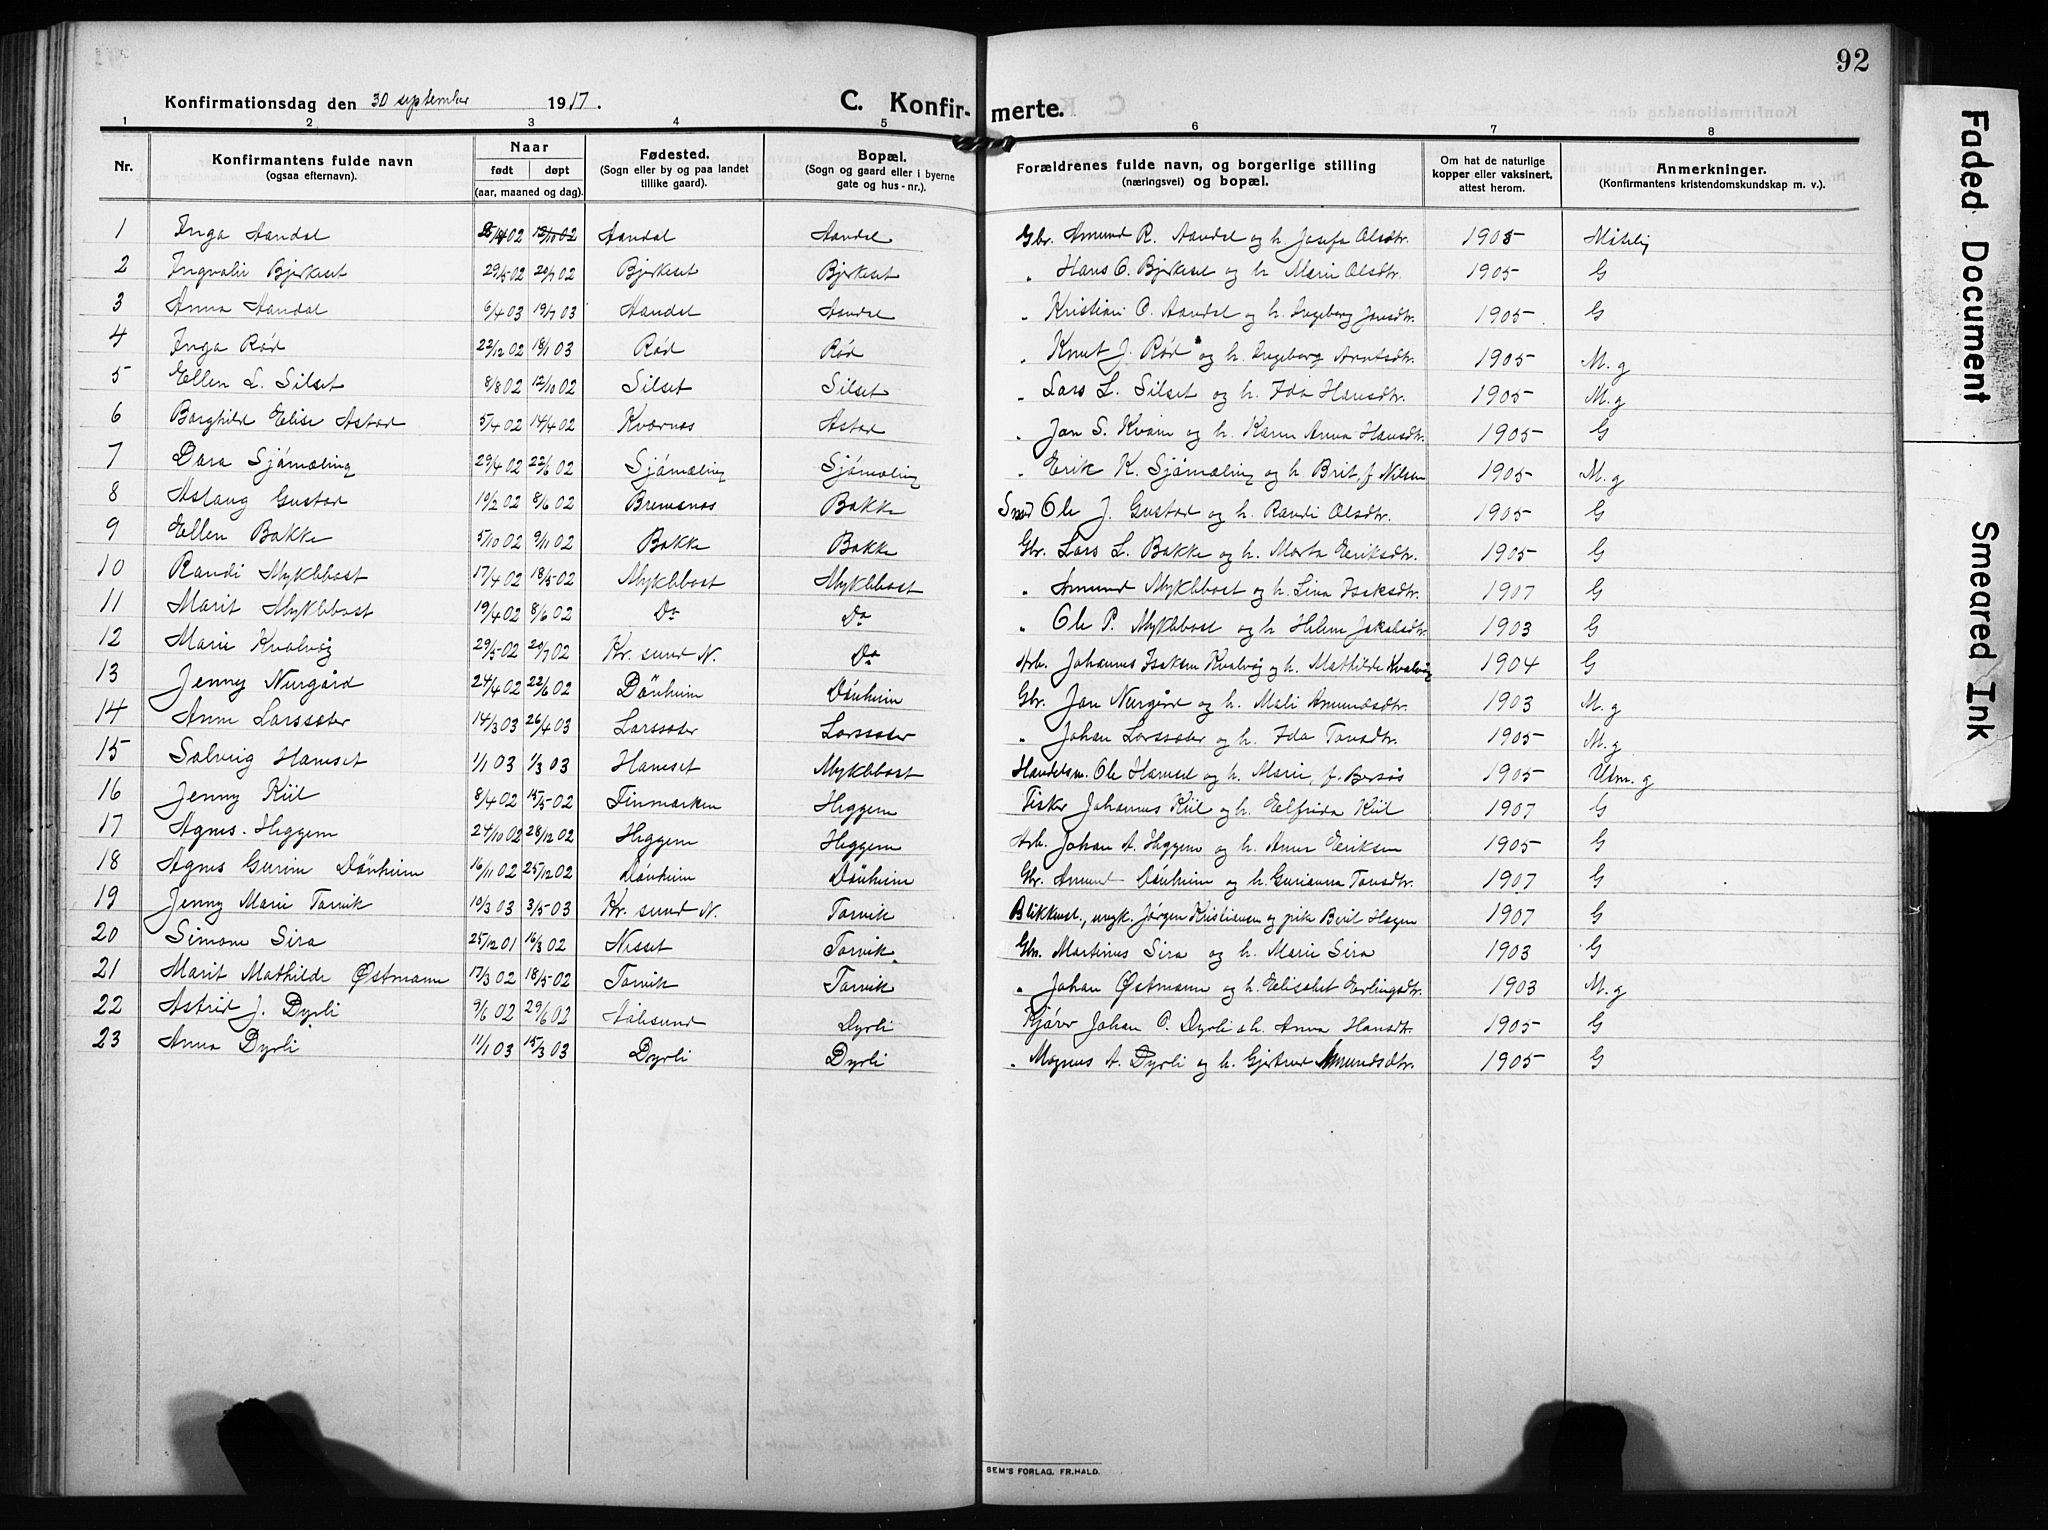 92
Konfirmationsdag den 30 september 1917.
C. Konfirmerte.
1 2 3 4 5 6 7 8
Nr. Konfirmantens fulde navn (ogsaa efternavn). Naar født døpt (aar, maaned og dag). Fødested. (Sogn eller by og paa landet tillike gaard). Bopæl. (Sogn og gaard eller i byerne gate og hus-nr.). Forældrenes fulde navn, og borgerlige stilling (næringsvei) og bopæl. Om hat de naturlige kopper eller vaksinert, attest herom. Anmerkninger. (Konfirmantens kristendomskundskap m. v.).
1 Inga Aandal 12/10 02 Aandal Aandal Gbr. Amund R. Aandal og h. Josefa Olsdtr. 1905
2 Ingvalie Bjerkeset 29/5 02 20/7 02 Bjerkeset Bjerkeset " Hans O. Bjerkeset og h. Marie Olsdtr. 1905 G
3 Anna Aandal 6/4 03 19/7 03 Aandal Aandal " Kristian O. Aandal og h. Ingeborg Jonsdtr. 1905 G
4 Inga Rød 22/12 02 18/1 03 Rød Rød " Knut J. Rød og h. Ingeborg Arntsdtr. 1905 M. g
5 Ellen L. Silset 8/8 02 12/10 02 Silset Silset " Lars L. Silset og h. Ida Hansdtr. 1905 M. g
6 Borghild Elise Astad 5/4 02 14/4 02 Kvernes Astad " Jon S. Kvam og h. Karen Anna Hansdtr. 1905 G
7 Dora Sjömæling 29/4 02 22/6 02 Sjömæling Sjömæling " Erik K. Sjömæling og h. Brit, f. Nilsen 1905 M. g
8 Aslaug Gustad 19/2 02 8/6 02 Bremsnes Bakke Smed Ole J. Gustad og h. Randi Olsdtr. 1905 G
9 Ellen Bakke 5/10 02 9/11 02 Bakke Bakke Gbr. Lars L. Bakke og h. Marta Eriksdtr. 1905 G
10 Randi Myklebost 17/4 02 18/5 02 Myklebost Myklebost " Amund Myklebost og h. Lina Isaksdtr. 1907 G
11 Marit Myklebost 19/4 02 8/6 02 Do Do " Ole P. Myklebost og h. Helene Jakobsdtr. 1903 G
12 Marie Kvalvåg 29/5 02 20/7 02 Kr. sund N. Do Arb. Johannes Isaksen Kvalvåg og h. Mathilde Kvalvåg 1904 G
13 Jenny Nergård 24/4 02 22/6 02 Dönheim Dönheim Gbr. Jon Nergård og h. Mali Amundsdtr. 1903 M. g
14 Anne Larssæter 14/3 03 26/4 03 Larssæter Larssæter " Johan Larssæter og h. Ida Tonsdtr. 1905 M. g
15 Solveig Hamset 1/1 03 1/3 03 Hamset Myklebost Handelsm. Ole Hamset og h. Marie, f. Bersås 1905 Utm. g
16 Jenny Kiil 8/4 02 15/5 02 Finmarken Heggem Fisker Johannes Kiil og h. Elfrida Kiil 1907 G
17 Agnes Heggem 24/10 02 28/12 02 Heggem Heggem Arb. Johan A. Heggem og h. Anne Eriksen 1905 G
18 Agnes Gurine Dönheim 16/11 02 25/12 02 Dönheim Dönheim Gbr. Amund Dönheim og h. Gurianna Tonsdtr. 1907 G
19 Jenny Marie Torvik 10/3 03 3/5 03 Kr. sund N. Torvik Blikkensl., ungk. Jörgen Kristiansen og pike Beret Hagen 1907 G
20 Simone Sira 25/12 01 16/3 02 Nesset Torvik Gbr. Martinus Sira og h. Marie Sira 1903 G
21 Marit Mathilde Østmann 17/3 02 18/5 02 Torvik Torvik " Johan Østmann og h. Elisabet Erlingsdtr. 1903 M. g
22 Astrid J. Dyrli 9/6 02 29/6 02 Aalesund Dyrli Kjörer Johan O. Dyrli & h. Anna Hansdtr 1905 G
23 Anna Dyrli 11/1 03 15/3 03 Dyrli Dyrli " Magnus A. Dyrli og h. Gjertrud Amundsdtr. 1905 G
SEM'S FORLAG, FR.HALD.
Faded Document
Smeared Ink